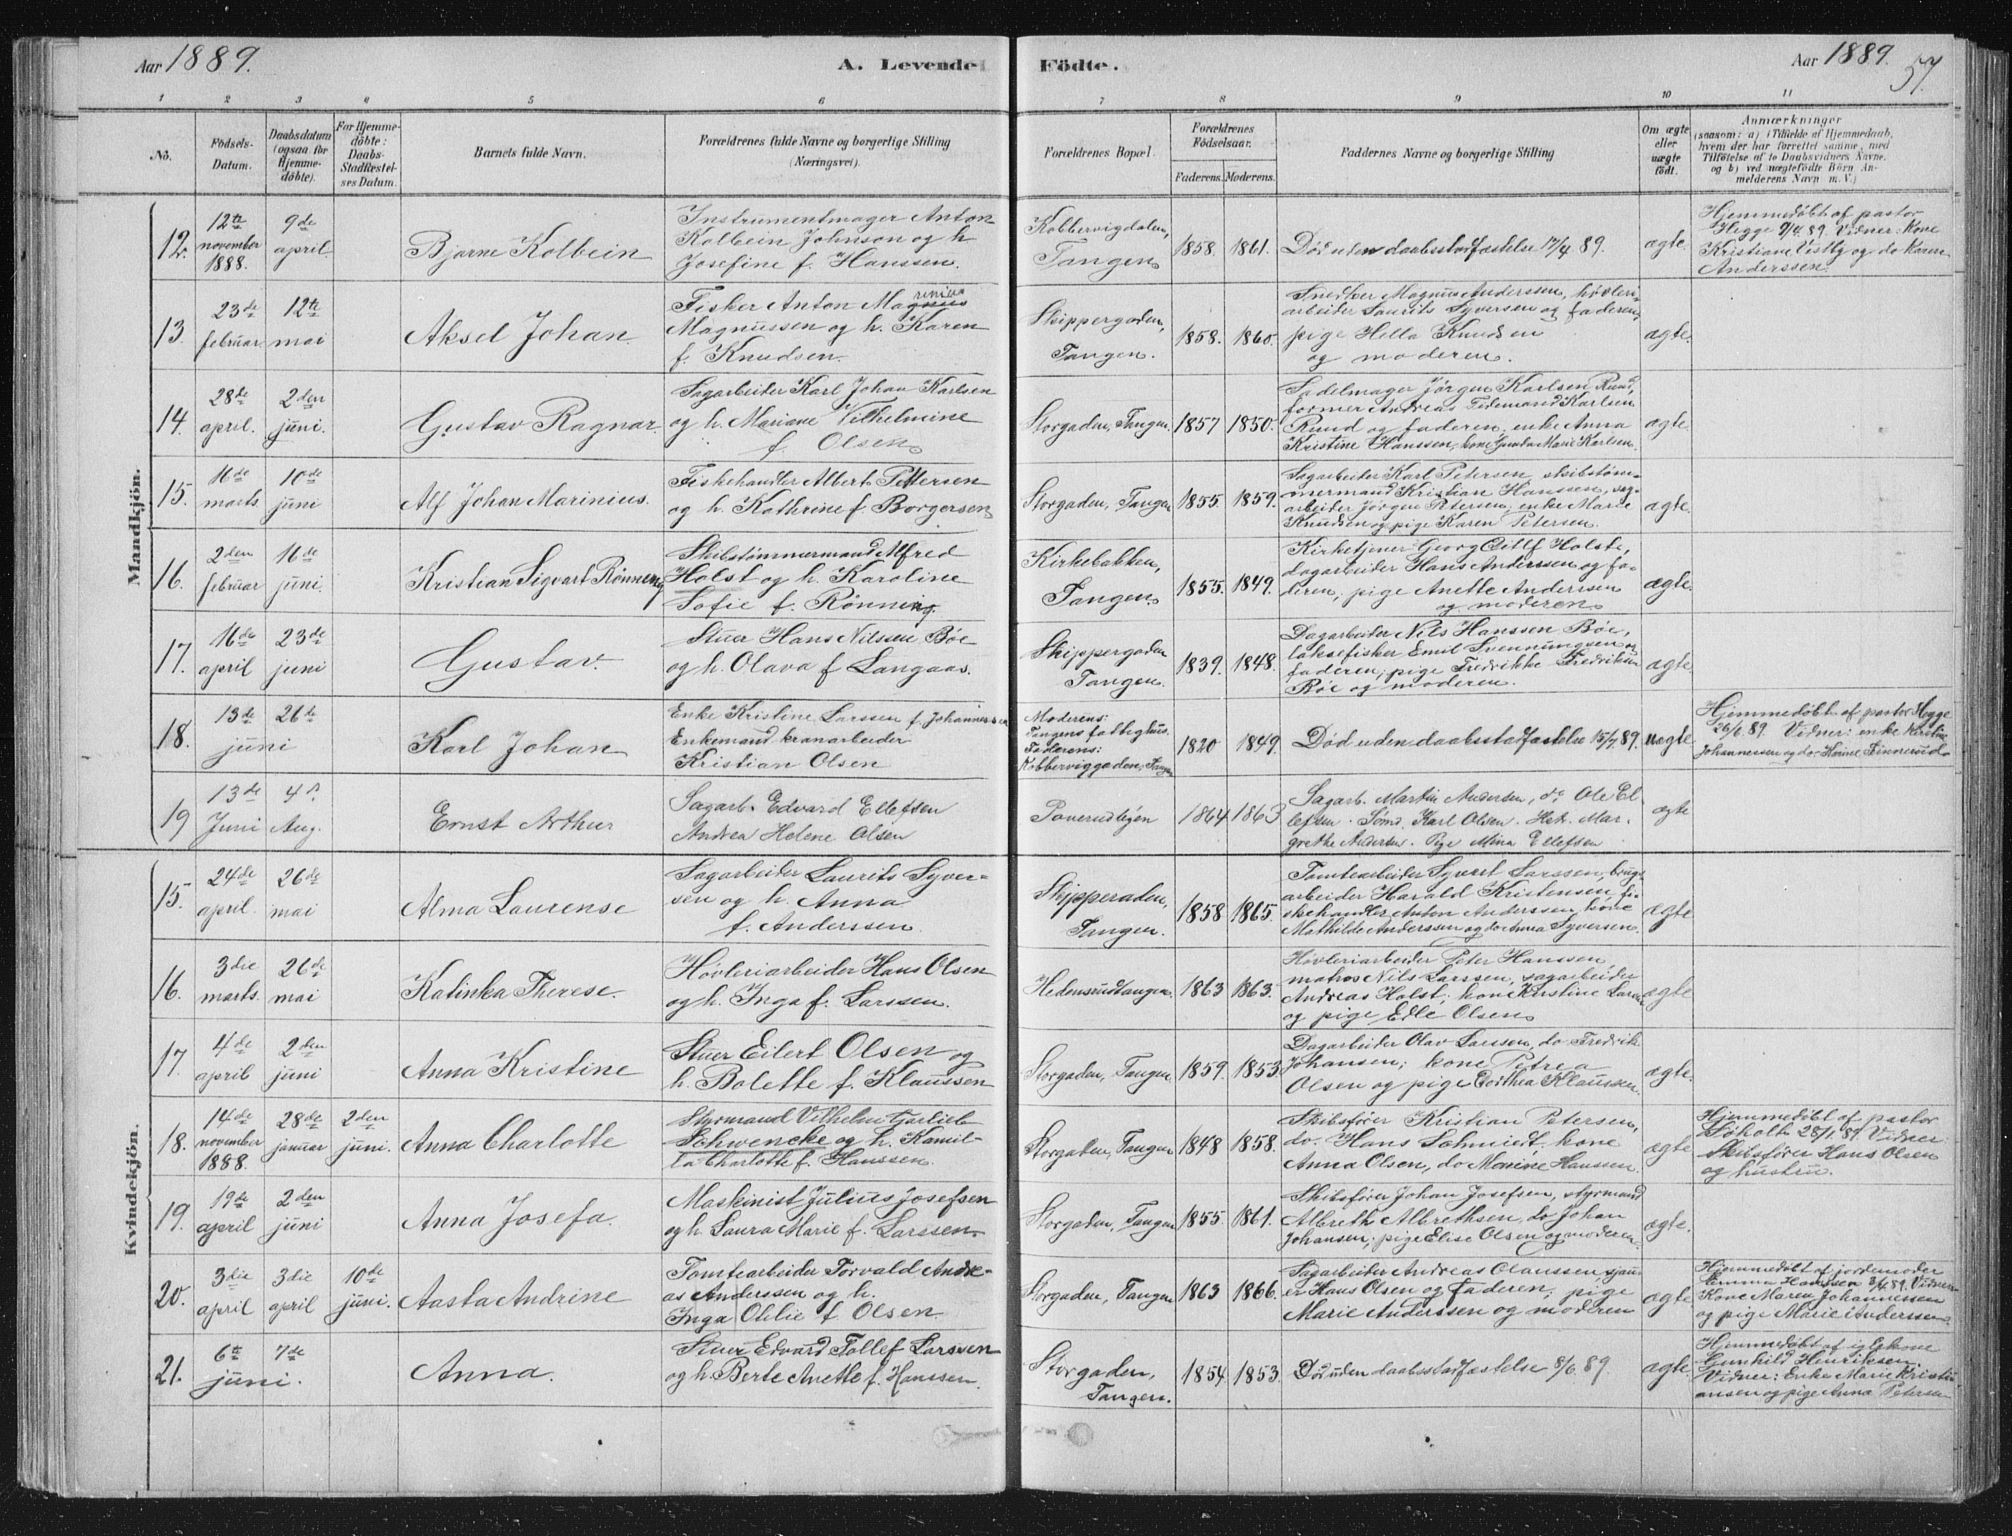 Aar 1889.
A. Levende Födte.
Aar 1889.
57.
1 2 3 4 5 6 7 8 9 10 11
No.
Födsels-
Datum.
Daabsdatum
(ogsaa for
Hjemme-
döbte).
For Hjemme-
döbte:
Daabs-
Stadfæstel-
ses Datum.
Barnets fulde Navn.
Forældrenes fulde Navne og borgerlige Stilling
(Næringsvei).
Forældrenes Bopæl.
Forældrenes
Födselsaar.
Faderens. Moderens.
Faddernes Navne og borgerlige Stilling
Om ægte
eller
uægte
födt.
Anmærkninger
(saasom: a) i Tilfælde af Hjemmedaab,
hvem der har forrettet samme, med
Tilföielse af to Daabsvidners Navne.
og b) ved uægtefödte Börn An-
melderens Navn m. V.)
Mandkjön.
12.
12te
november
1888.
9de
april.
Bjarne Kolbein
Instrumentmager Anton
Kolbein Johnson og h
Josefine f. Hanssen.
Kobbervigdalen,
Tangen
1858. 1861.
Död uden daabsstadfæstelse 17/4 89.
ægte
Hjemmedöbt af pastor
Hegge 9/4 89. Vidner: Kone
Kristiane Vestby og do Karen
Anderssen.
13.
23de
februar
12te
mai
Aksel Johan
Fisker Anton Magnus
rinius
Magnussen og h. Karen
f. Knudsen.
Skippergaden,
Tangen.
1858. 1860.
Snedker Magnus Anderssen, hövleri-
arbeider Laurits Syversen og faderen,
pige Hella Knudsen
og moderen.
ægte.
14.
28de
april.
2den
juni.
Gustav Ragnar.
Sagarbeider Karl Johan Karlsen
og h. Mariane Vilhelmine
f. Olsen
Storgaden, Tangen
1857 1850.
Sadelmager Jörgen Karlsen Ruud,
former Andreas Tidemand Karlsen
Ruud og faderen, enke Anna
Kristine Hanssen, kone Gunda Marie Karlsen.
ægte.
15.
16de
marts
10de
juni
Alf Johan Marinius.
Fiskehandler Albert Pettersen
og h. Kathrine f. Borgersen
Storgaden, Tangen
1855. 1859.
Sagarbeider Karl Petersen, skibstöm-
mermand Kristian Hanssen, sag-
arbeider Jörgen Petersen, enke Marie
Knudsen og pige Karen Petersen.
ægte.
16.
2den
februar
16de
juni.
Kristian Sigvart Rönning
Skibstömmermand Alfred
Holst og h. Karoline
Sofie f. Rönning
Kirkebakken,
Tangen.
1855. 1849.
Kirketjener Georg Holste,
dagarbeider Hans Anderssen og fa-
deren, pige Anette Anderssen
og moderen
ægte.
17.
16de
april
23de
juni
Gustav.
Stuer Hans Nilssen Böe
og h. Olava f Langaas.
Skippergaden
Tangen.
1839. 1848.
Dagarbeider Nils Hanssen Böe,
laksefisker Emil Svenningsen og
faderen, pige Fredrikke Fredriksen
Böe og moderen.
ægte
18.
13de
juni
26de
Karl Johan
Enke Kristine Larssen f. Johannessen
Enkemand kranarbeider
Kristian Olsen
Moderens:
Tangens fattighus.
Faderens:
Kobberviggaden, Tangen
1820 1849.
Död uden daabsstadfæstelse 15/7 89.
uægte
Hjemmedöbt af pastor Hegge
26/6 89. Vidner: enke Kirstine
Johannessen og do Karine Finnerud
19
13de
Juni
4d.
Aug.
Ernst Arthur
Sagarb. Edvard Ellefsen
Andrea Helene Olsen
Toverudbyen
1864 1863
Sagarb. Martin Andersen, do Ole El-
lefsen. Sömd. Karl Olsen. Hst. Mar-
grethe Andersen. Pige Mina Ellefsen
ægte
Kvindekjön.
15.
24de
april.
26de
mai
Alma Laurense
Sagarbeider Laurits Syver-
sen og h. Anna
f. Anderssen.
Skipperaden,
Tangen.
1858 1865.
Tomtearbeider Syvert Larssen, brugs-
arbeider Harald Kristensen, fi-
skehandler Anton Anderssen, kone
Mathilde Anderssen og do Anna Syversen
ægte
16.
3die
marts.
26de
mai
Kalinka Therese.
Hövleriarbeider Hans Olsen
og h. Inga f. Larssen.
Hedensrudtangen.
1863 1863.
Hövleriarbeider Peter Hanssen,
matros Nils Larssen, sagarbeider
Andreas Holst; kone Kirstine Larsen
og pige Edle Olsen
ægte
17.
4de
april
2den
juni
Anna Kristine
Stuer Eilert Olsen og
h. Bolette f. Klaussen
Storgaden, Tangen
1859. 1853.
Dagarbeider Olav Larssen, do Fredrik
Johansen; kone Petrea
Olsen og pige Dorthea Klaussen
ægte.
18.
14de
november
1888.
28de
januar
2den
juni.
Anna Charlotte
Styrmand Vilhelm Garlieb
Schwencke og h. Kamil-
la Charlotte f. Hanssen.
Storgaden, Tangen
1848 1858.
Skibsförer Kristian Petersen,
do. Hans Schmidt, kone
Anna Olsen, do Monine Hanssen.
ægte
Hjemmedöbt af pastor
Sjöholt 28/1 89. Vidner
Skibsförer Hans Olsen
og hustru.
19.
19de
april
2den
juni
Anna Josefa.
Maskinist Julius Josefsen
og h. Laura Marie f. Larssen.
Storgaden, Tangen
1855. 1861.
Skibsförer Johan Josefsen, styrmand
Albreth Albrethsen, do Johan
Johansen, pige Elise Olsen og moderen.
ægte.
20.
3die
april
3die
april
10de
juni.
Aasta Andrine
Tomtearbeider Torvald Andre-
as Anderssen og h.
Inga Otilie f. Olsen.
Storgaden, Tangen
1863 1866.
Sagarbeider Andreas Olaussen, sjau-
er Hans Olsen og faderen, pige
Marie Anderssen og moderen
ægte
Hjemmedöbt af jordemoder
Emma Hanssen 3/4 89. Vidner
Kone Maren Johannessen
og pige Marie Anderssen.
21.
6te
juni.
7de
Anna.
Stuer Edvard Tollef Larssen
og h. Berte Anette f. Hanssen.
Storgaden,
Tangen.
1854 1853.
Död uden daabsstadfæstelse 8/6 89
ægte.
Hjemmedöbt af
Gunhild Henriksen.
Vidner: Enke Marie Kristi-
ansen og pige Anna Petersen